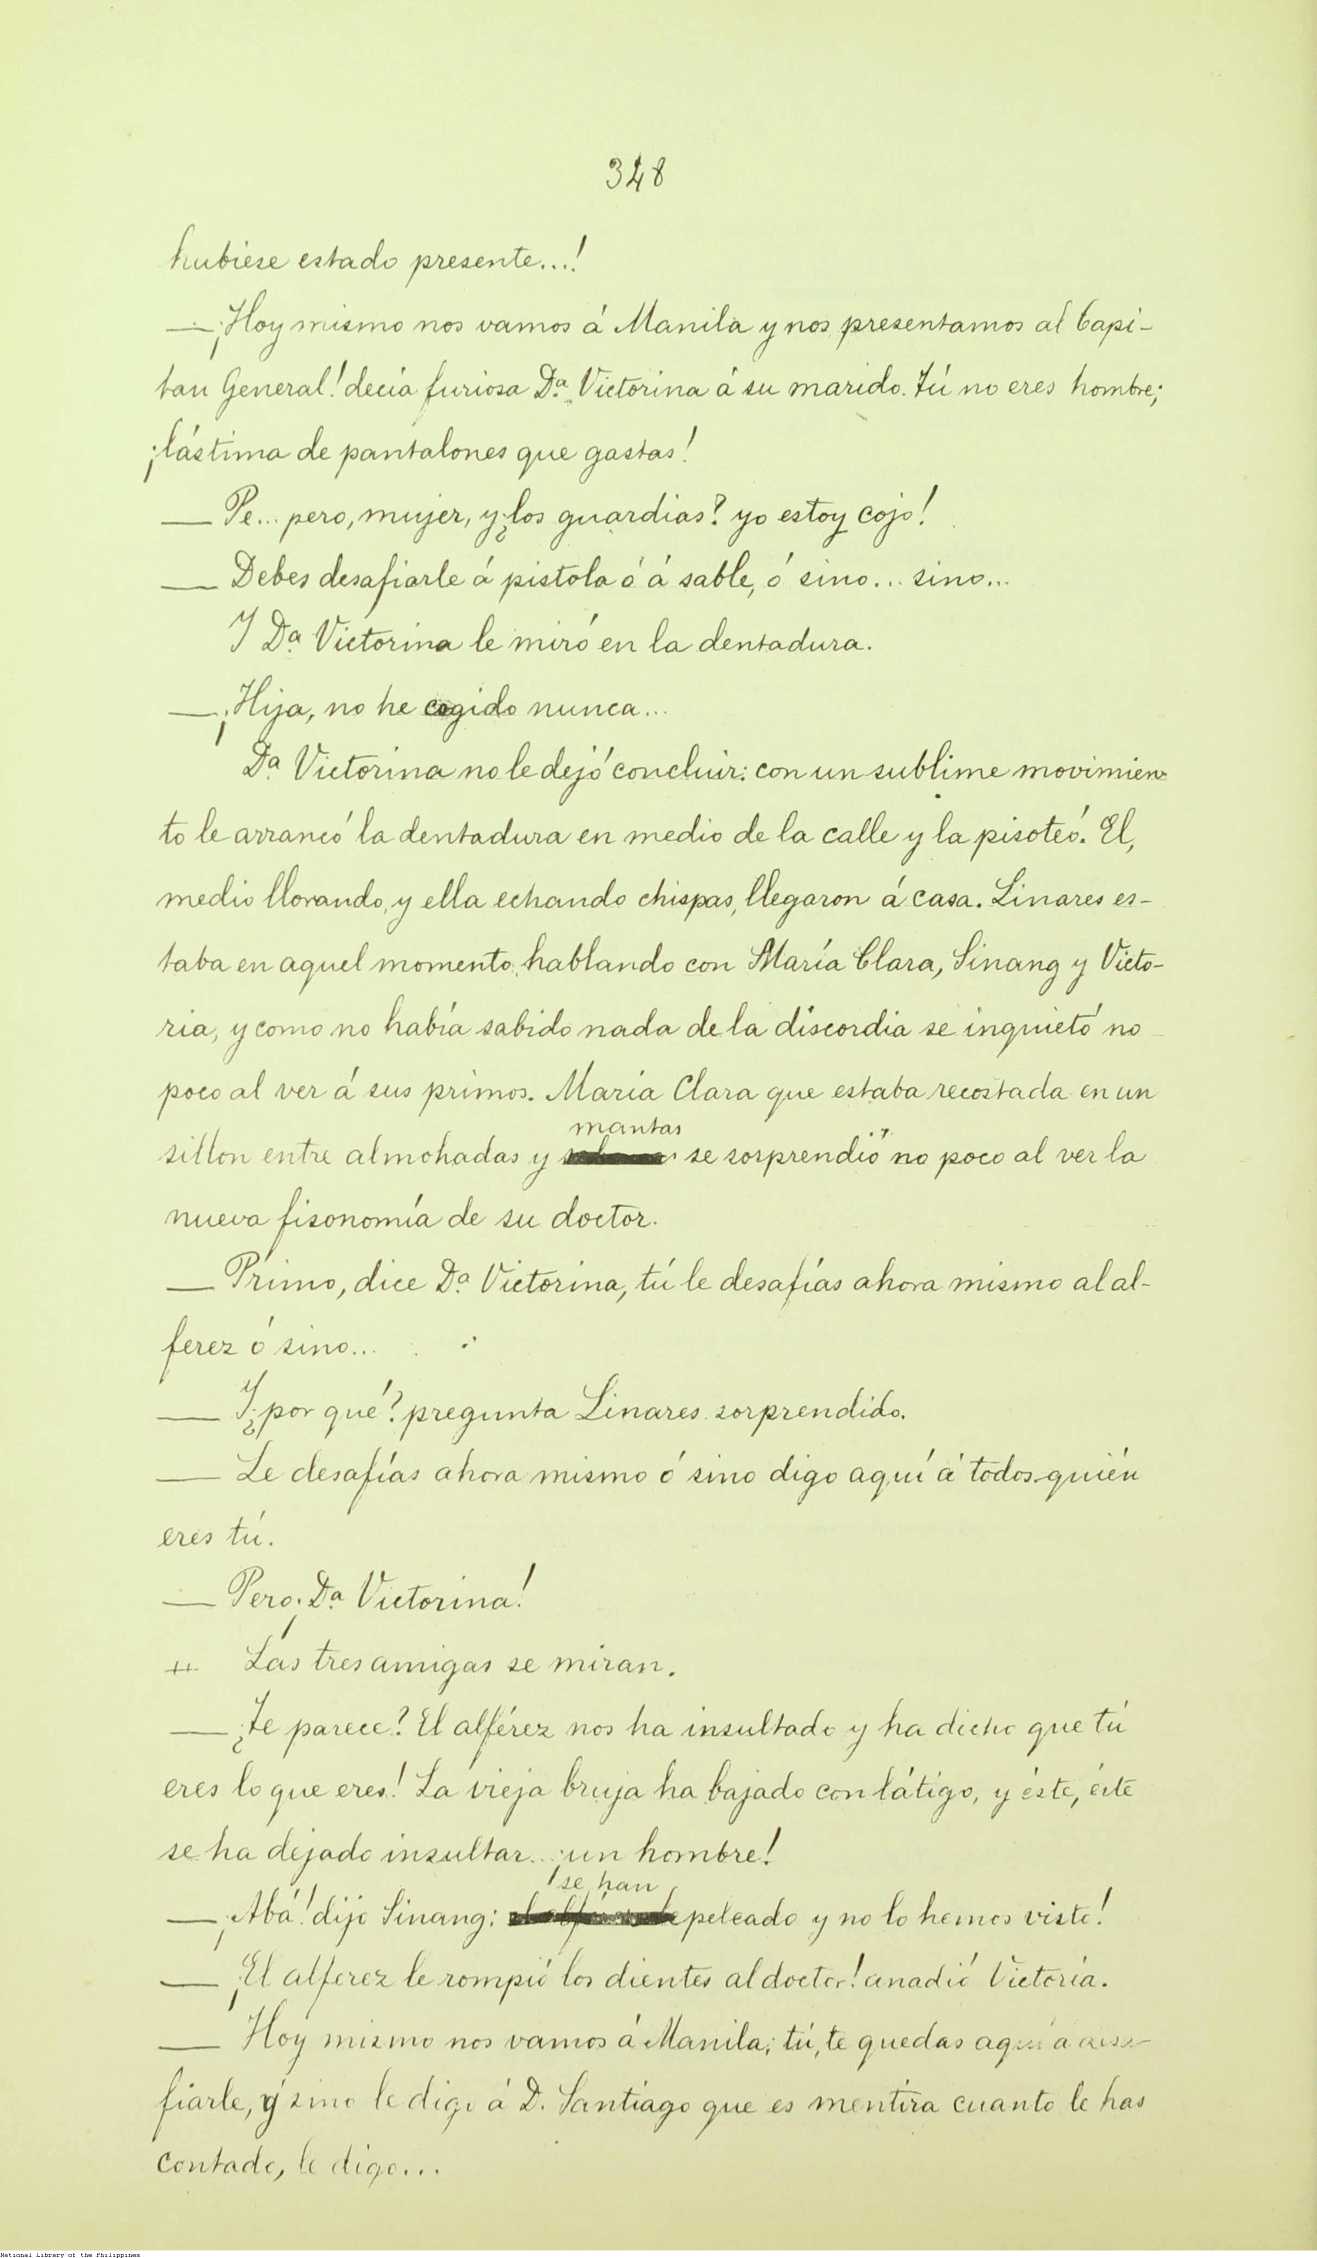 348
hubiese estado presente...!
— ¡Hoy mismo nos vamos á Manila y nos presentamos al Capi-
tan General! decía furiosa Dª. Victorina á su marido. Tú no eres hombre;
¡lástima de pantalones que gastas!
— Pe... pero, mujer, y ¿los guardias? yo estoy cojo!
— Debes desafiarle á pistola ó á sable, ó sino... sino...
Y Dª. Victorina le miró en la dentadura.
— ¡Hija, no he cogido nunca...
Dª. Victorina no le dejó concluir: con un sublime movimien-
to le arrancó la dentadura en medio de la calle y la pisoteó. El,
medio llorando, y ella echando chispas, llegaron á casa. Linares es-
taba en aquel momento hablando con María Clara, Sinang y Victo-
ria, y como no había sabido nada de la discordia se inquietó no
poco al ver á sus primos. María Clara que estaba recostada en un
mantas
sillon entre almohadas y se sorprendió no poco al ver la
nueva fisonomía de su doctor.
— Primo, dice Dª. Victorina, tú le desafías ahora mismo al al-
ferez ó sino...
— Y ¿por qué? pregunta Linares sorprendido.
— Le desafías ahora mismo ó sino digo aquí á todos quién
eres tú.
— Pero ¡Dª. Victorina!
Las tres amigas se miran.
— ¿Te parece? El alférez nos ha insultado y ha dicho que tú
eres lo que eres! La vieja bruja ha bajado con látigo, y éste, éste
se ha dejado insultar... ¡un hombre!
se han
— ¡Abá! dijo Sinang: peleado y no lo hemos visto!
— ¡El alferez le rompió los dientes al doctor! anadió Victoria.
— Hoy mismo nos vamos á Manila; tú, te quedas aquí a desa-
fiarle, y sino le digo á D. Santiago que es mentira cuanto le has
contado, le digo...
National Library of the Philippines